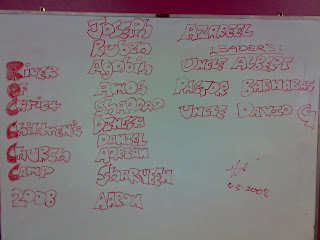 River
of
Christ
Children's
Church
Camp
2008
Joseph
Ruben
Agabin
Amos
Sharad
Dinesa
Daniel
Adrian
Sharveen
Aaron
Azareel
Leader's:
Uncle Albert
Pastor Barnabas
Uncle David G
4.3.2008